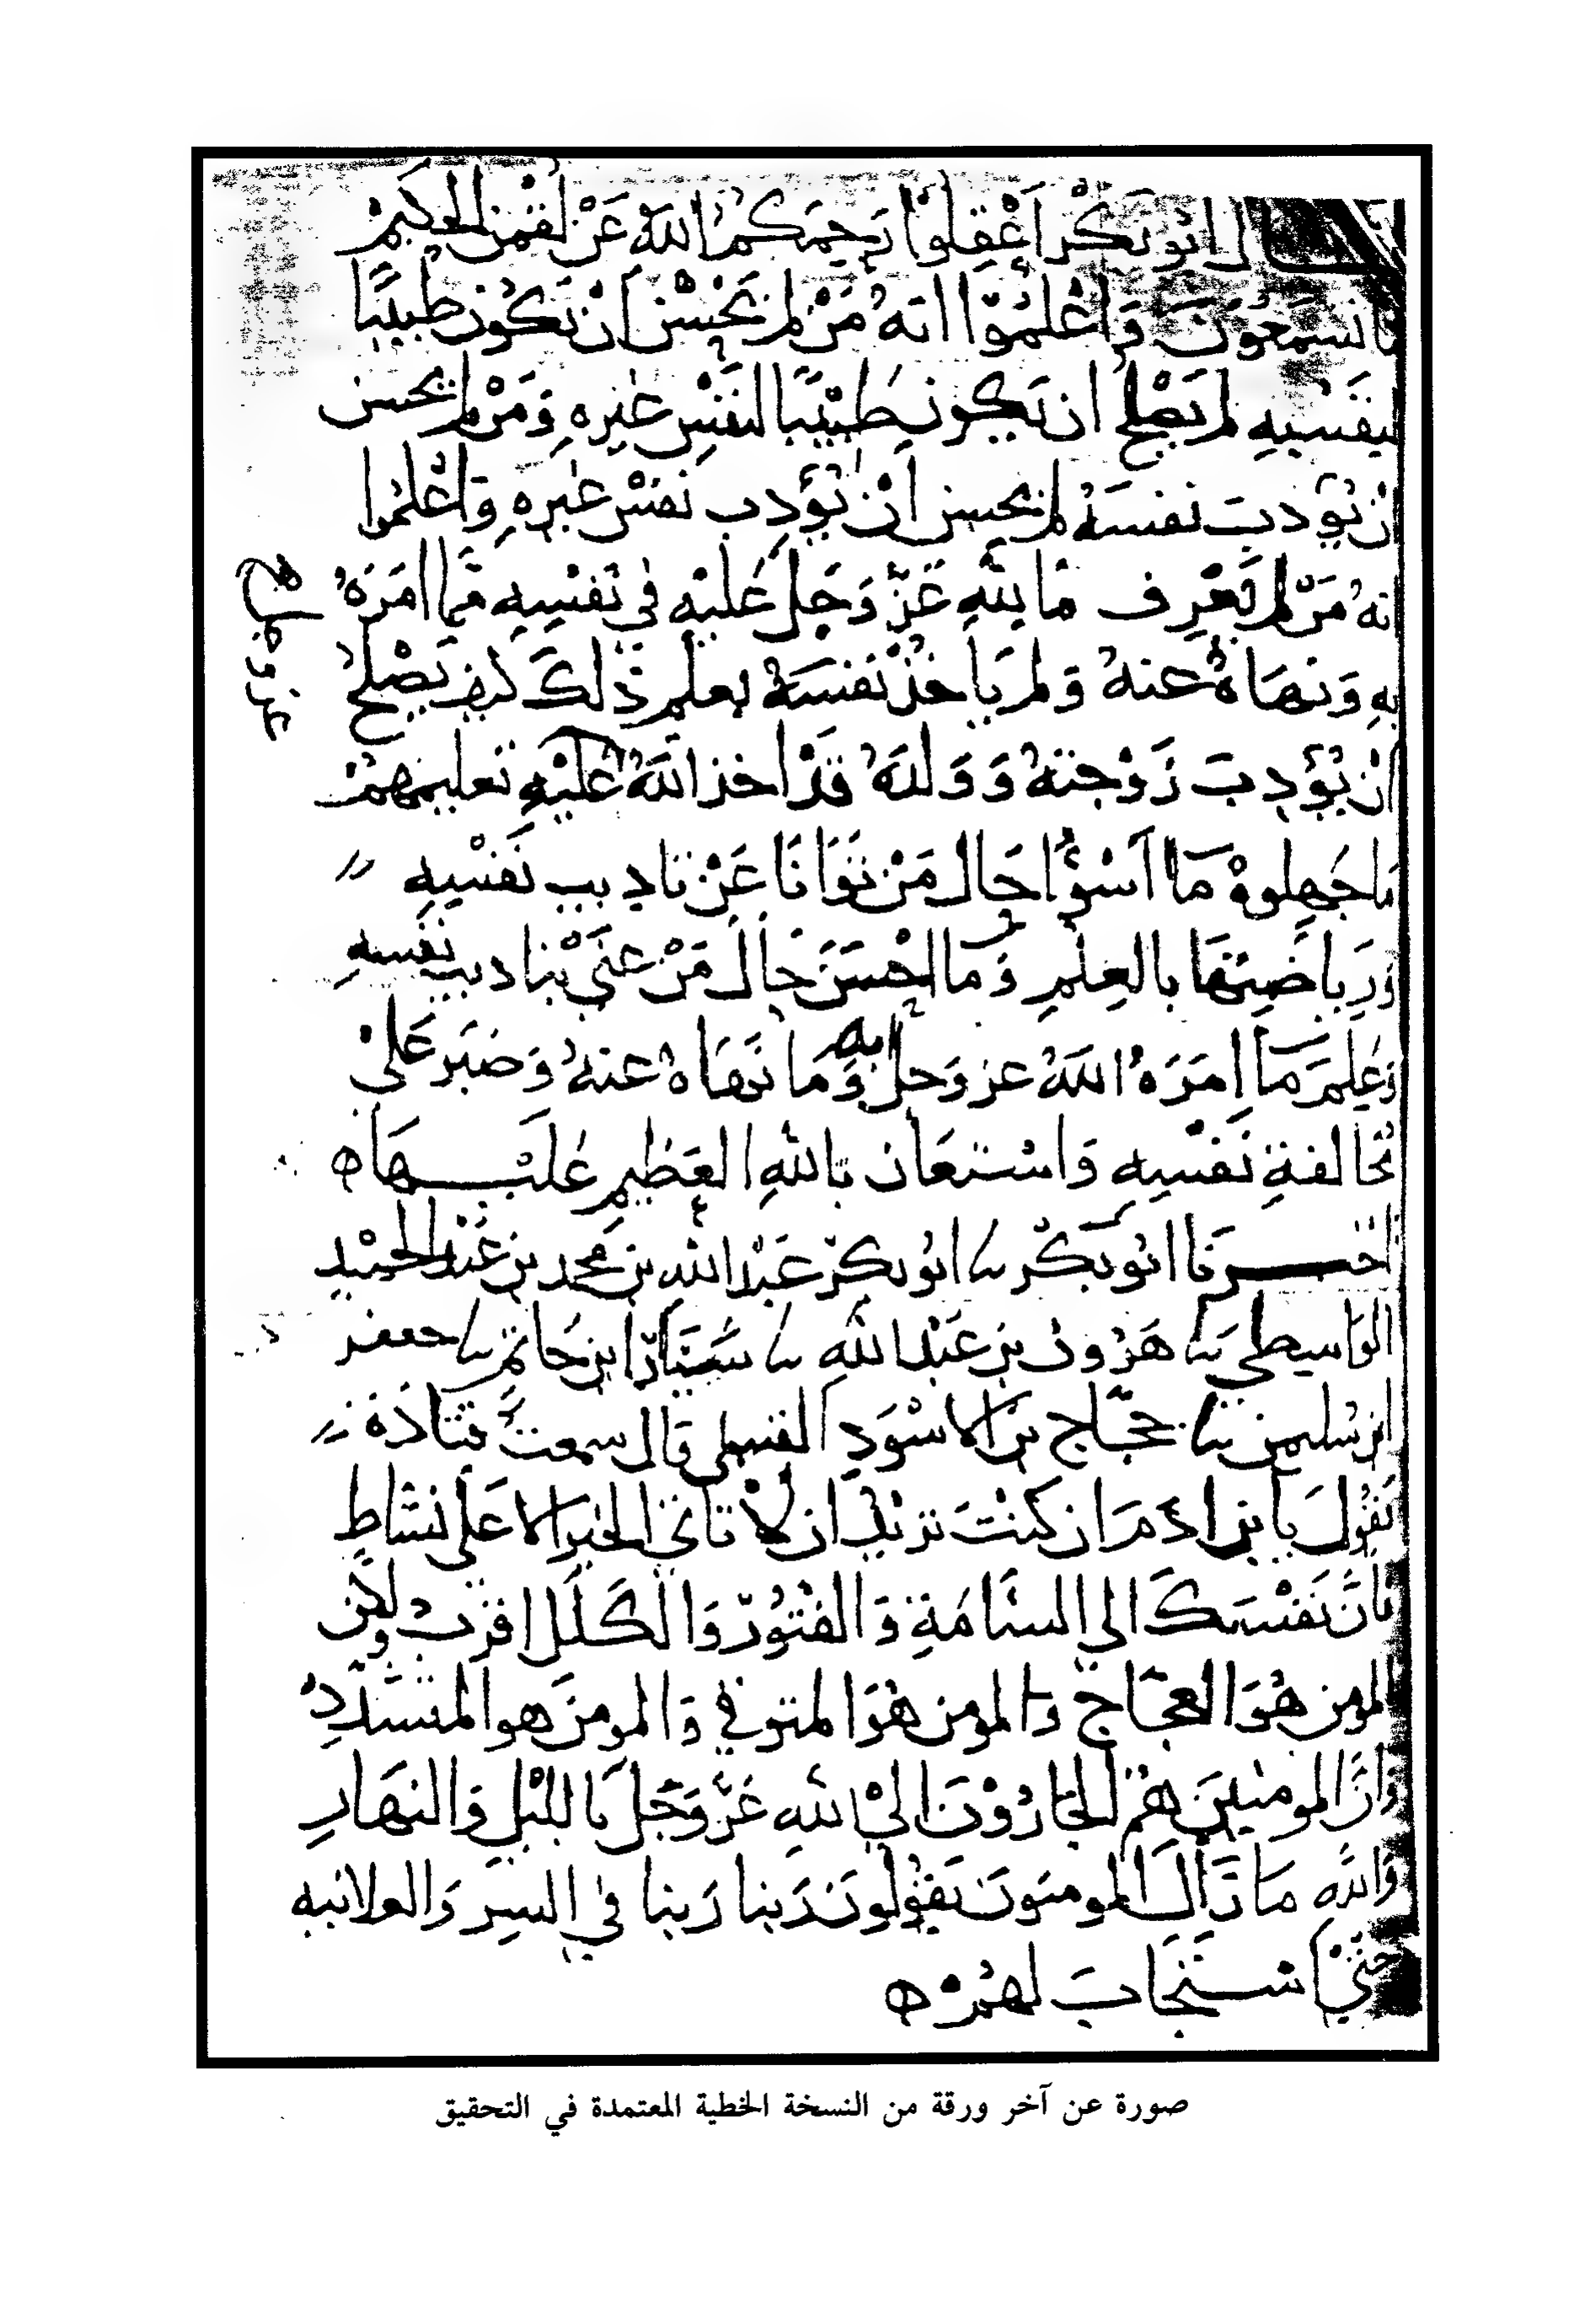 قال ابو بكر اعقلوا رحمكم الله عن لقمن الحكيم
ما تسمعون واعلموا انه من لم يحسن ان يكون طبيبا
لنفسه لم يصلح ان يكون طبيبا لنفس غيره ومن لم يحسن
ان يؤدب نفسه لم يحسن ان يؤدب نفس غيره واعلموا
انه من لم يعرف ما لله عز وجل عليه في نفسه مما امره
به ونهاه عنه ولم ياخذ نفسه بعلم ذلك كيف يصلح
ان يؤدب زوجته وولده قد اخذ الله عليه تعليمهم
ما جهلوه ما اسوا حال من توانا عن تاديب نفسه
ورياضتها بالعلم وما احسن حال من عني بتاديب نفسه
وعلم ما امره الله عز وجل به وما نهاه عنه وصبر على
مخالفة نفسه واستعان بالله العظيم عليها ه
اخبرنا ابو بكر نا ابو بكر عبد الله بن محمد بن عبد الحميد
الواسطي نا هرون بن عبد الله نا سيار ابن حاتم نا جعفر
ابن سليمن نا حجاج بن الاسود القسملي قال سمعت قتادة
يقول يا بن ادم ان كنت تريد ان لا تاتي الخير الا على نشاط
فان نفسك الى السامة والفتور والكلل اقرب ولكن
المومن هو العجاج والمومن هو المتوفي والمومن هو المتشدد
وان المومنين هم الجارون الى الله عز وجل بالليل والنهار
والله ما زال المومنون يقولون ربنا ربنا في السر والعلانيه
حتى استجاب لهم ه
صورة عن آخر ورقة من النسخة الخطية المعتمدة في التحقيق